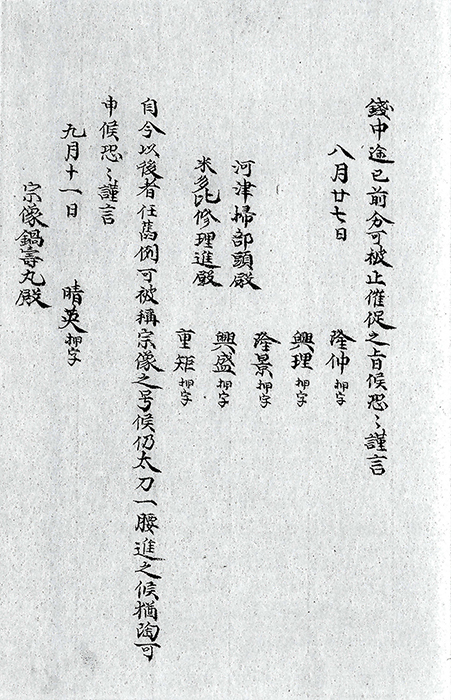 錢中途已前分可被止催促之旨候恐〻謹言
八月廿七日
隆仲 押字
興理 押字
隆景 押字
興盛 押字
重矩 押字
河津掃部頭殿
米多比修理進殿
自今以後者任舊例可被稱宗像之号候仍太刀一腰進之候猶陶可
申候恐〻謹言
九月十一日
晴英 押字
宗像鍋壽丸殿